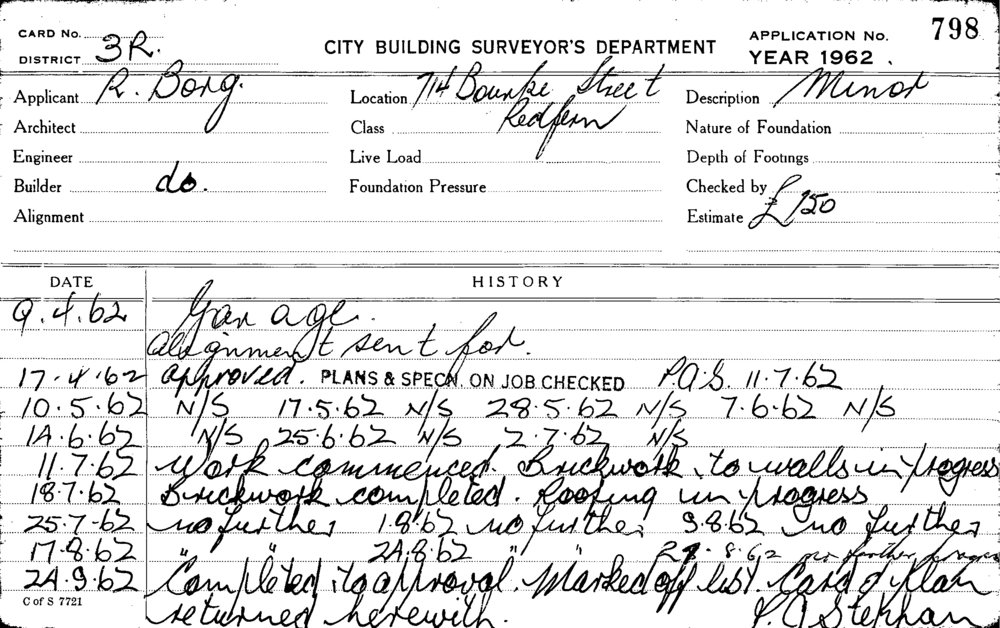 CARD No.
DISTRICT 3R.
CITY BUILDING SURVEYOR'S DEPARTMENT
APPLICATION No. 798
YEAR 1962 .
Applicant R. Borg. Location 714 Bourke Street Description Minor
Architect Class Redfern Nature of Foundation
Engineer Live Load Depth of Footings
Builder do. Foundation Pressure Checked by
Alignment Estimate £150
DATE HISTORY
9.4.62 Garage.
Alignment sent for.
17.4.62 approved. PLANS & SPECN. ON JOB CHECKED P.A.S. 11.7.62
10.5.62 N/S 17.5.62 N/S 28.5.62 N/S 7.6.62 N/S
14.6.62 N/S 25.6.62 N/S 2.7.62 N/S
11.7.62 Work commenced. Brickwork to walls in progress
18.7.62 Brickwork completed. Roofing in progress
25.7-62 no further 1.8.62 no further 9.8.62 no further
17.8.62 " " 24.8.62 " " 8.62 no further progress
24.9.62 Completed to approval. Marked off list. Card & Plan
C of S 7721
returned herewith. Stephan